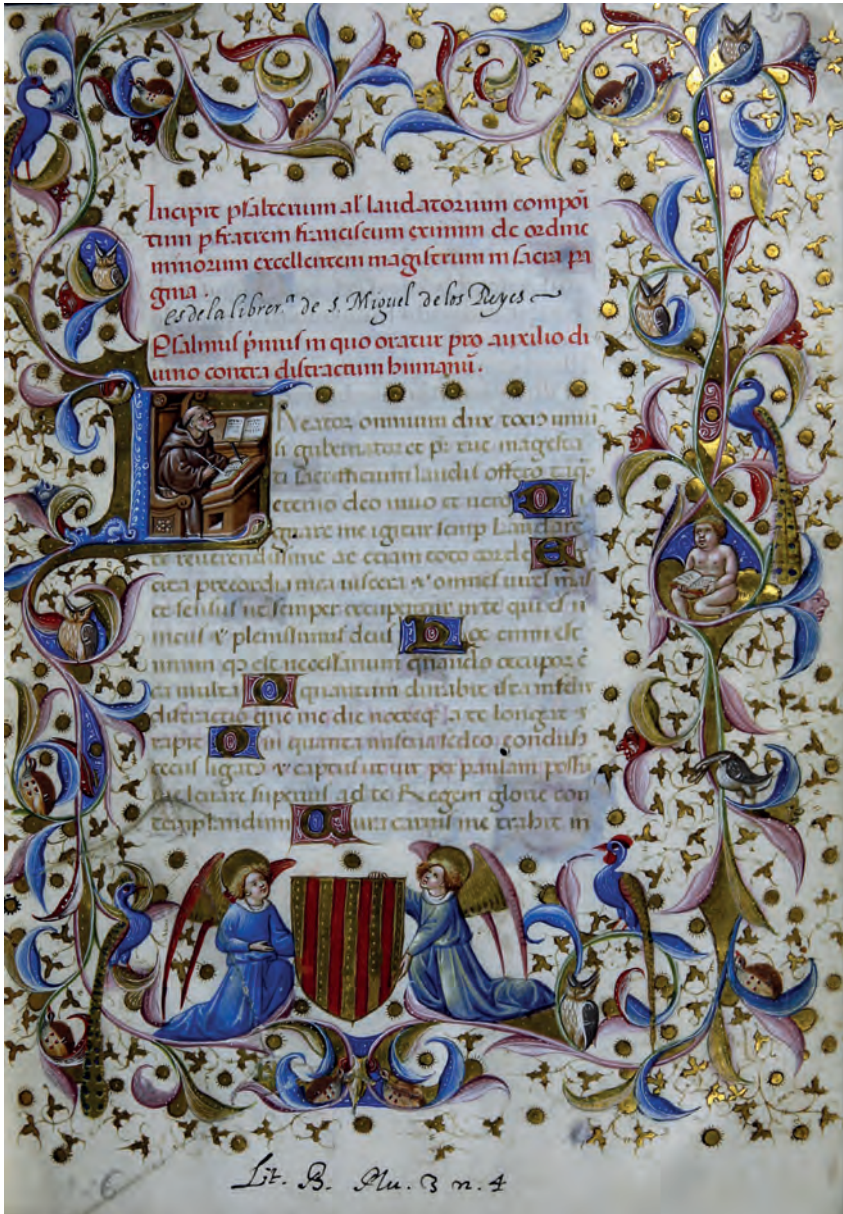 Incipit psalterium al' laudatorium compoi
tum p fratrem franciscum eximin de ordine
minorum excellentem magistrum in sacra pa
gina.
es de la librer.ª de S. Miguel de los Reyes
Psalmus p̃mus in quo oratur pro auxilio di
uino contra distractum humanũ.
Creator omnium dux
si gubernator et magesta
ti sacrificium laudis offero
eterno deo uiuo et uero
me igitur semp laudare
te reuerendissime ac etiam toto corde
precordia mea uiscera omnes
te sensus ut semper occupentur in te qui es u
nicus plenissimus deus hoc enim est
unum qd est necessarium quando occupor
ca multa O quantum durabit ista infelix
distractio que me die nocteq a te longat
O in quanta miseria sedeo
cecus ligatus captus
me leuare superius ad te Regem glorie con
templandum Cura carnis me trahit in
6
Lit. B. Plu. 3 n. 4